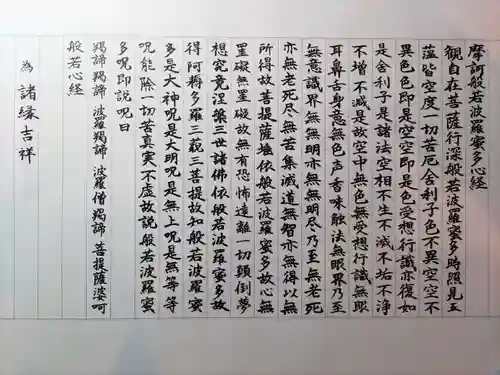 摩訶般若波羅蜜多心経
観自在菩薩行深般若波羅蜜多時照見五
蘊皆空度一切苦厄舎利子色不異空空不
異色色即是空空即是色受想行識亦復如
是舎利子是諸法空相不生不滅不垢不浄
不増不減是故空中無色無受想行識無眼
耳鼻舌身意無色声香味触法無眼界乃至
無意識界無無明亦無無明尽乃至無老死
亦無老死尽無苦集滅道無智亦無得以無
所得故菩提薩埵依般若波羅蜜多故心無
罣礙無罣礙故無有恐怖遠離一切顛倒夢
想究竟涅槃三世諸佛依般若波羅蜜多故
得阿耨多羅三藐三菩提故知般若波羅蜜
多是大神呪是大明呪是無上呪是無等等
呪能除一切苦真実不虚故説般若波羅蜜
多呪即説呪曰
羯諦羯諦 波羅羯諦 波羅僧羯諦 菩提薩婆呵
般若心経
為 諸縁吉祥